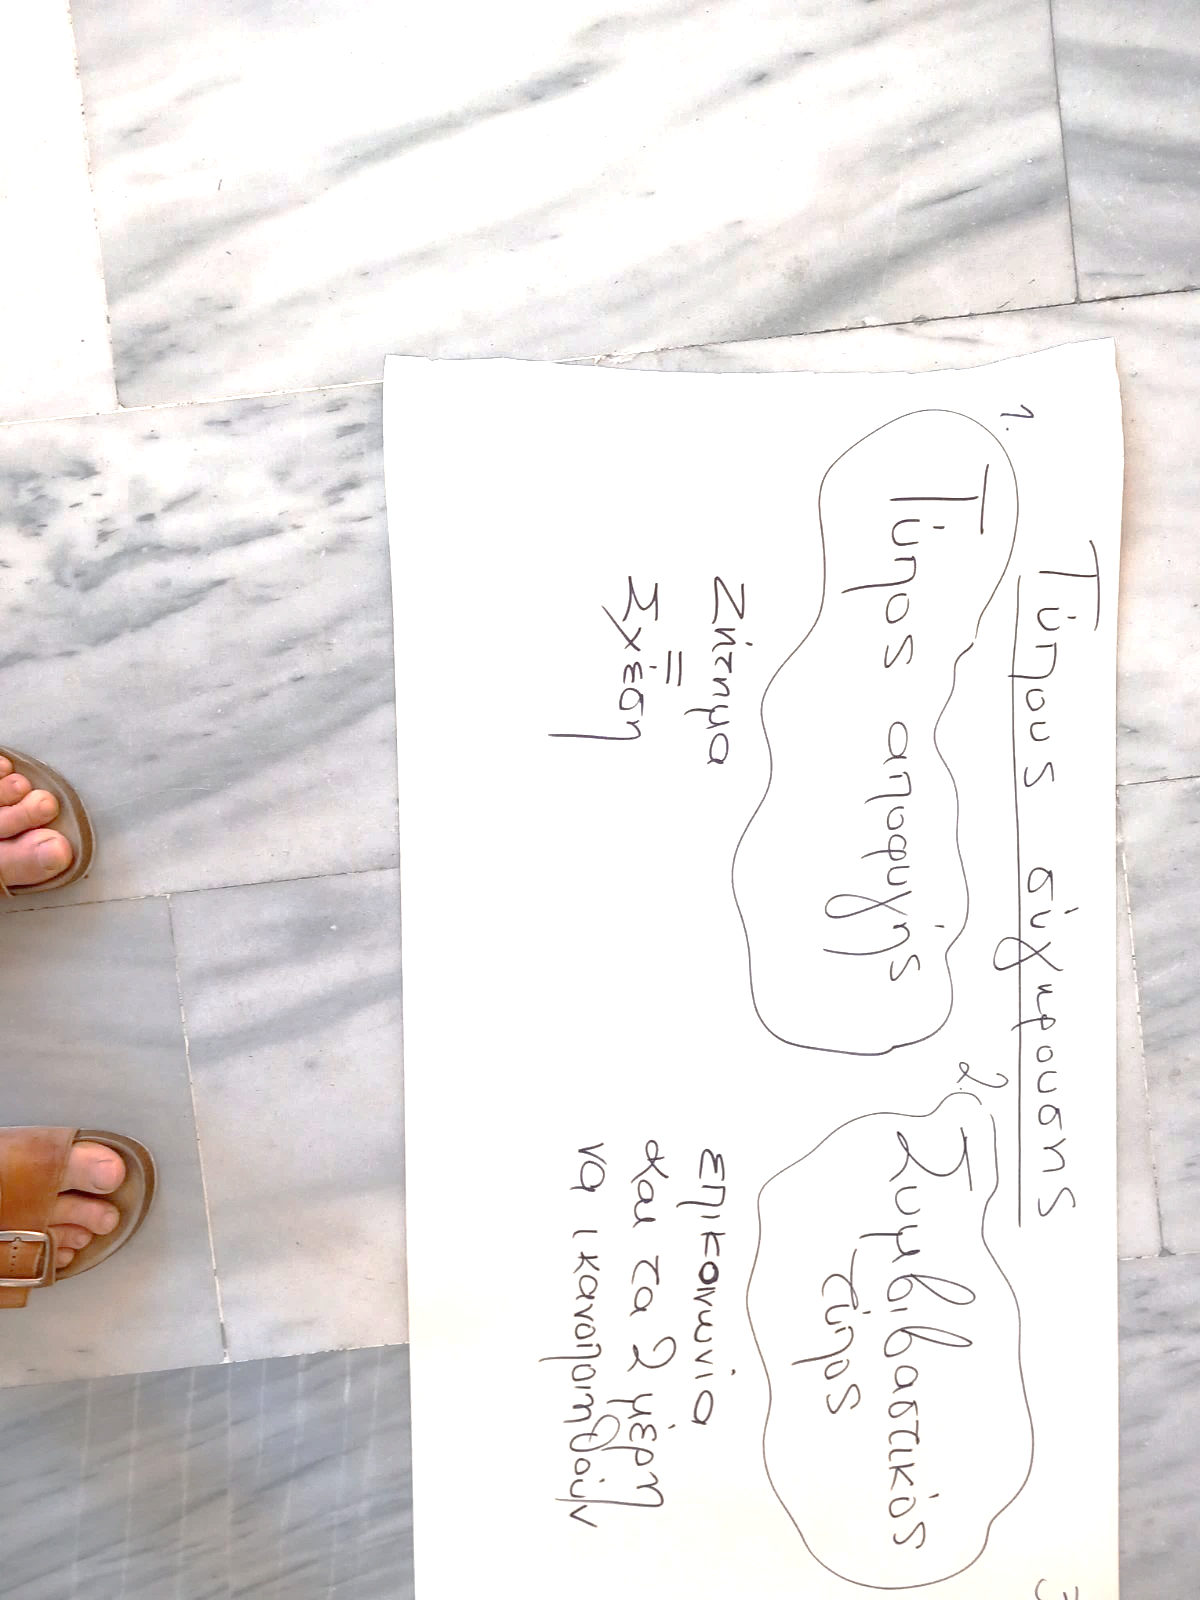 Τύπους σύγκρουσης
1.
Τύπος αποφυγής
Ζήτημα
=
Σχέση
2.
Συμβιβαστικός
τύπος
επικοινωνία
και τα 2 μέρη
να ικανοποιηθούν
3